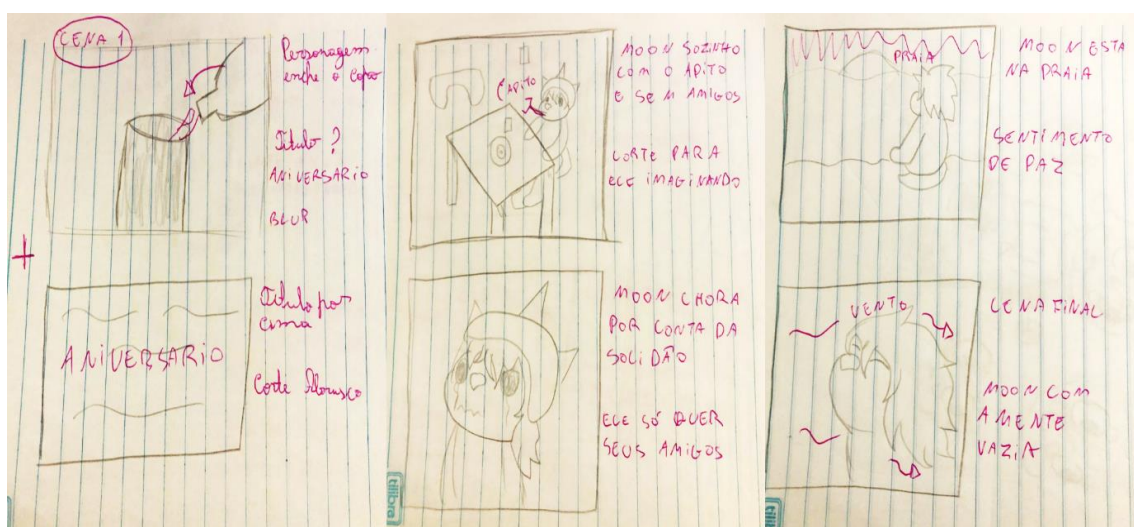 CENA 1
Personagem
enche o copo
Título ?
ANIVERSARIO
BLUR
+
Título por
cima
ANIVERSARIO
Corte Abrusco
MOON SOZINHO
COM O APITO
E SEM AMIGOS
(APITO
CORTE PARA
ELE IMAGINANDO
MOON CHORA
POR CONTA DA
SOLIDÃO
ELE SÓ QUER
SEUS AMIGOS
tilibra
PRAIA
MOON ESTA
NA PRAIA
SENTIMENTO
DE PAZ
VENTO
CENA FINAL
MOON COM
A MENTE
VAZIA
tilibra